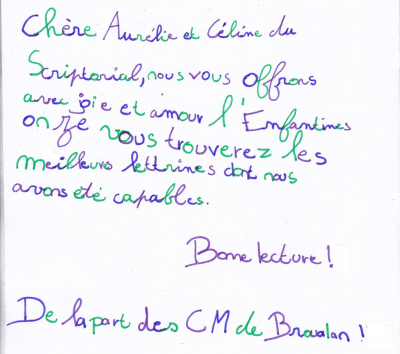 Chère Aurélie et Céline du
Scriptorial, nous vous offrons
avec joie et amour l'Enfantines
onze vous trouverez les
meilleurs lettrines dont nous
avons été capables.
Bonne lecture !
De la part des CM de Brovalan !